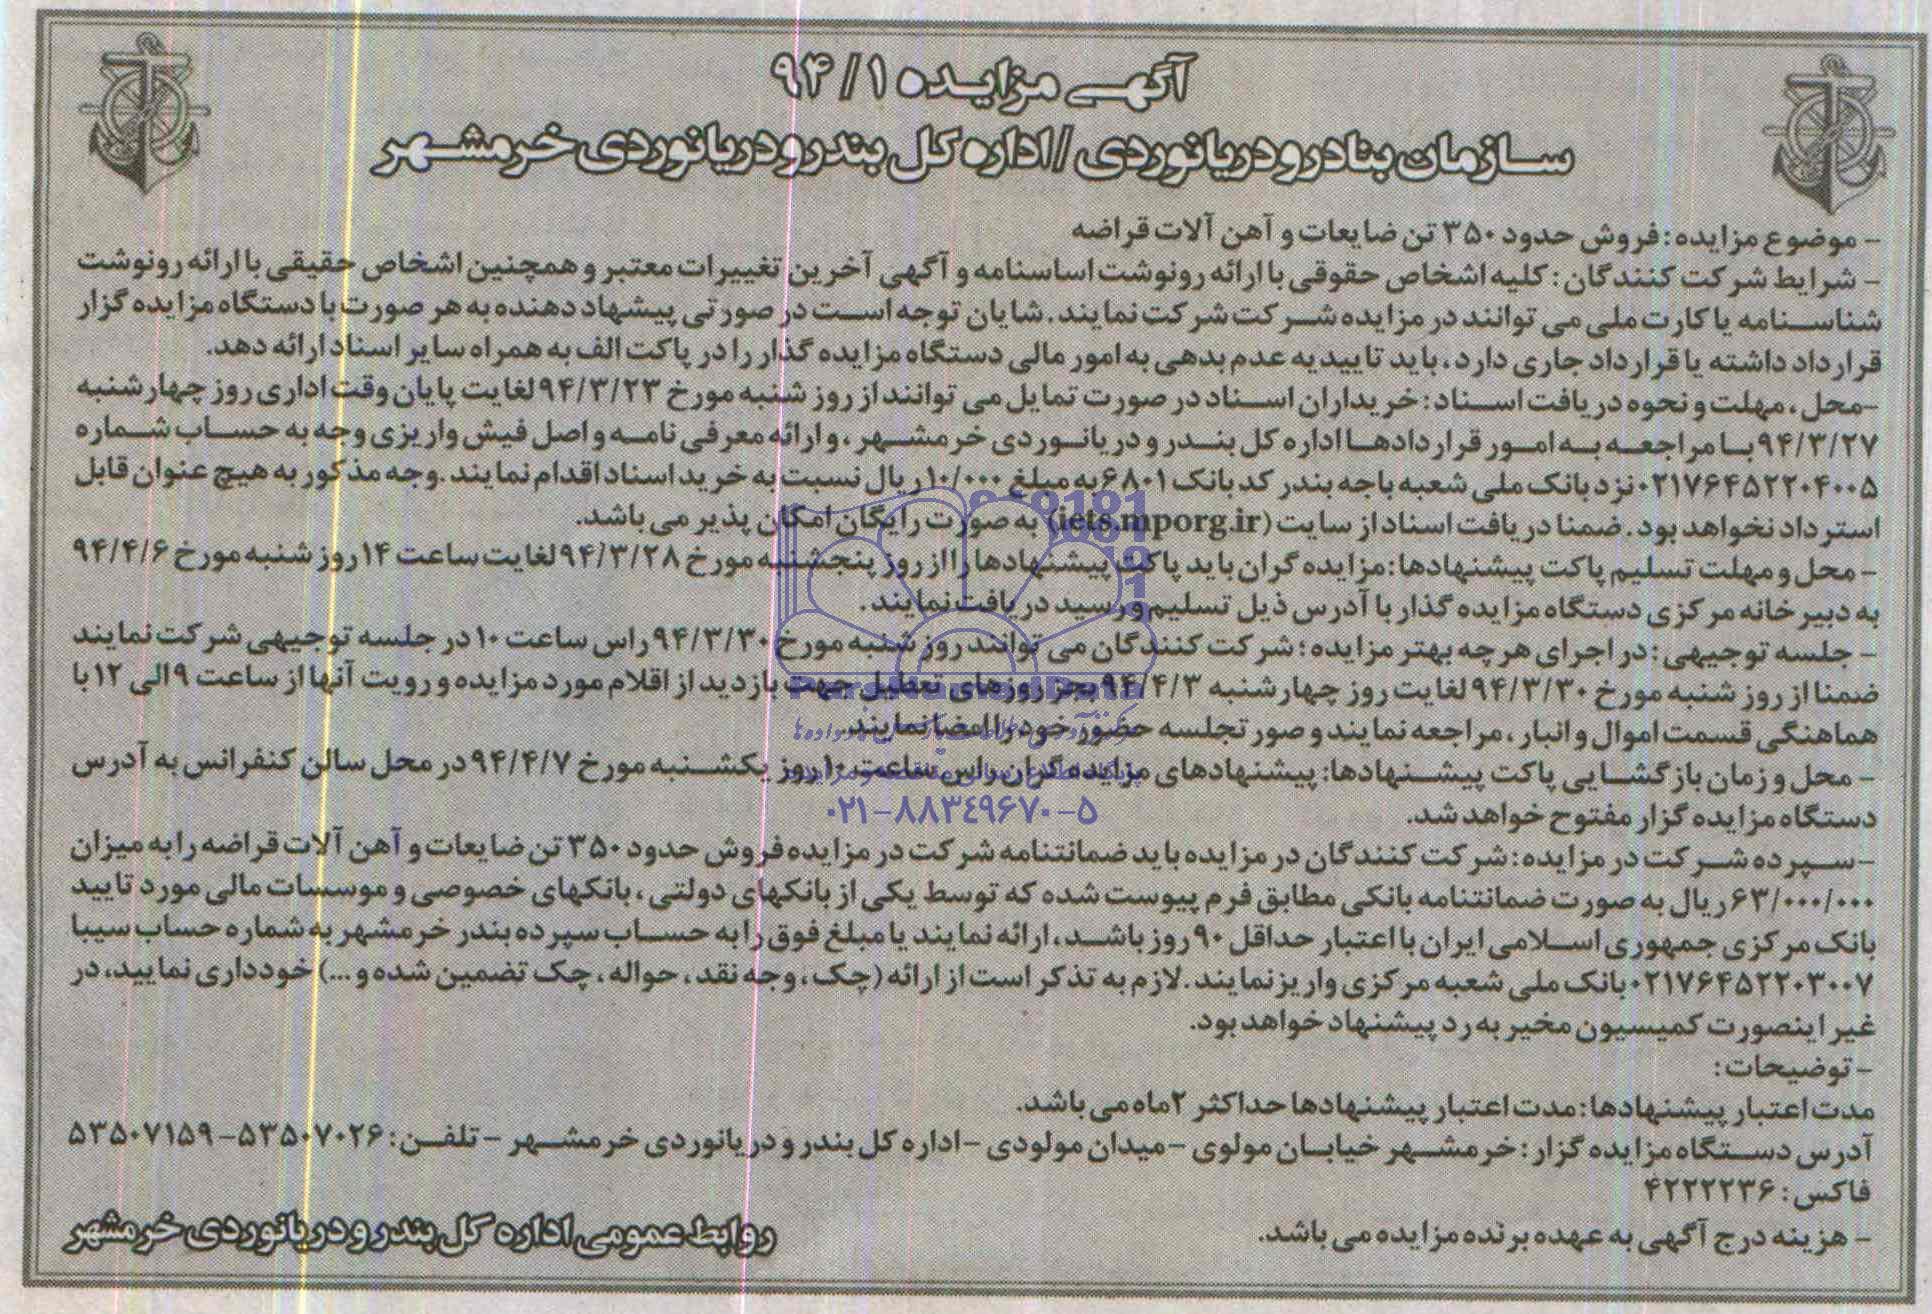 آگهی مزایده ۹۴/۱
سازمان بنادر و دریانوردی / اداره کل بندر و دریانوردی خرمشهر
- موضوع مزایده: فروش حدود ۳۵۰ تن ضایعات و آهن آلات قراضه
- شرایط شرکت کنندگان: کلیه اشخاص حقوقی با ارائه رونوشت اساسنامه و آگهی آخرین تغییرات معتبر و همچنین اشخاص حقیقی با ارائه رونوشت
شناسنامه یا کارت ملی می توانند در مزایده شرکت شرکت نمایند. شایان توجه است در صورتی پیشهاد دهنده به هر صورت با دستگاه مزایده گزار
قرارداد داشته یا قرارداد جاری دارد، باید تاییدیه عدم بدهی به امور مالی دستگاه مزایده گذار را در پاکت الف به همراه سایر اسناد ارائه دهد.
-محل، مهلت و نحوه دریافت اسناد: خریداران اسناد در صورت تمایل می توانند از روز شنبه مورخ ۹۴/۳/۲۳ لغایت پایان وقت اداری روز چهارشنبه
۹۴/۳/۲۷ با مراجعه به امور قراردادها اداره کل بندر و دریانوردی خرمشهر، و ارائه معرفی نامه و اصل فیش واریزی وجه به حساب شماره
۰۲۱۷۶۴۵۲۲۰۴۰۰۵ نزد بانک ملی شعبه باجه بندر کد بانک ۶۸۰۱ به مبلغ ۱۰/۰۰۰ ریال نسبت به خرید اسناد اقدام نمایند. وجه مذکور به هیچ عنوان قابل
استرداد نخواهد بود. ضمنا دریافت اسناد از سایت (iets.mporg.ir) به صورت رایگان امکان پذیر می باشد.
- محل و مهلت تسلیم پاکت پیشنهادها: مزایده گران باید پاکت پیشنهادها را از روز پنجشنبه مورخ ۹۴/۳/۲۸ لغایت ساعت ۱۴ روز شنبه مورخ ۹۴/۴/۶
به دبیرخانه مرکزی دستگاه مزایده گذار با آدرس ذیل تسلیم و رسید دریافت نمایند.
- جلسه توجیهی: در اجرای هر چه بهتر مزایده؛ شرکت کنندگان می توانند روز شنبه مورخ ۹۴/۳/۳۰ راس ساعت ۱۰ در جلسه توجیهی شرکت نمایند
ضمنا از روز شنبه مورخ ۹۴/۳/۳۰ لغایت روز چهارشنبه ۹۴/۴/۳ بجز روزهای تعطیل جهت بازدید از اقلام مورد مزایده و رویت آنها از ساعت ۹ الی ۱۲ با
هماهنگی قسمت اموال و انبار، مراجعه نمایند و صورتجلسه حضور خود را امضا نمایند.
- محل و زمان بازگشایی پاکت پیشنهادها: پیشنهادهای مزایده گران راس ساعت ۱۰ روز یکشنبه مورخ ۹۴/۴/۷ در محل سالن کنفرانس به آدرس
دستگاه مزایده گزار مفتوح خواهد شد.
۰۲۱-۸۸۳۴۹۶۷۰-۵
-سپرده شرکت در مزایده: شرکت کنندگان در مزایده باید ضمانتنامه شرکت در مزایده فروش حدود ۳۵۰ تن ضایعات و آهن آلات قراضه را به میزان
۶۳/۰۰۰/۰۰۰ ریال به صورت ضمانتنامه بانکی مطابق فرم پیوست شده که توسط یکی از بانکهای دولتی، بانکهای خصوصی و موسسات مالی مورد تایید
بانک مرکزی جمهوری اسلامی ایران با اعتبار حداقل ۹۰ روز باشد، ارائه نمایند یا مبلغ فوق را به حساب سپرده بندر خرمشهر به شماره حساب سیبا
۰۲۱۷۶۴۵۲۲۰۳۰۰۷ بانک ملی شعبه مرکزی واریز نمایند. لازم به تذکر است از ارائه (چک، وجه نقد، حواله، چک تضمین شده و ...) خودداری نمایید، در
غیر اینصورت کمیسیون مخیر به رد پیشنهاد خواهد بود.
- توضیحات:
مدت اعتبار پیشنهادها: مدت اعتبار پیشنهادها حداکثر ۲ ماه می باشد.
آدرس دستگاه مزایده گزار: خرمشهر خیابان مولوی - میدان مولودی - اداره کل بندر و دریانوردی خرمشهر - تلفن: ۵۳۵۰۷۰۲۶ - ۵۳۵۰۷۱۵۹
فاکس: ۴۲۲۲۲۳۶
- هزینه درج آگهی به عهده برنده مزایده می باشد.
روابط عمومی اداره کل بندر و دریانوردی خرمشهر